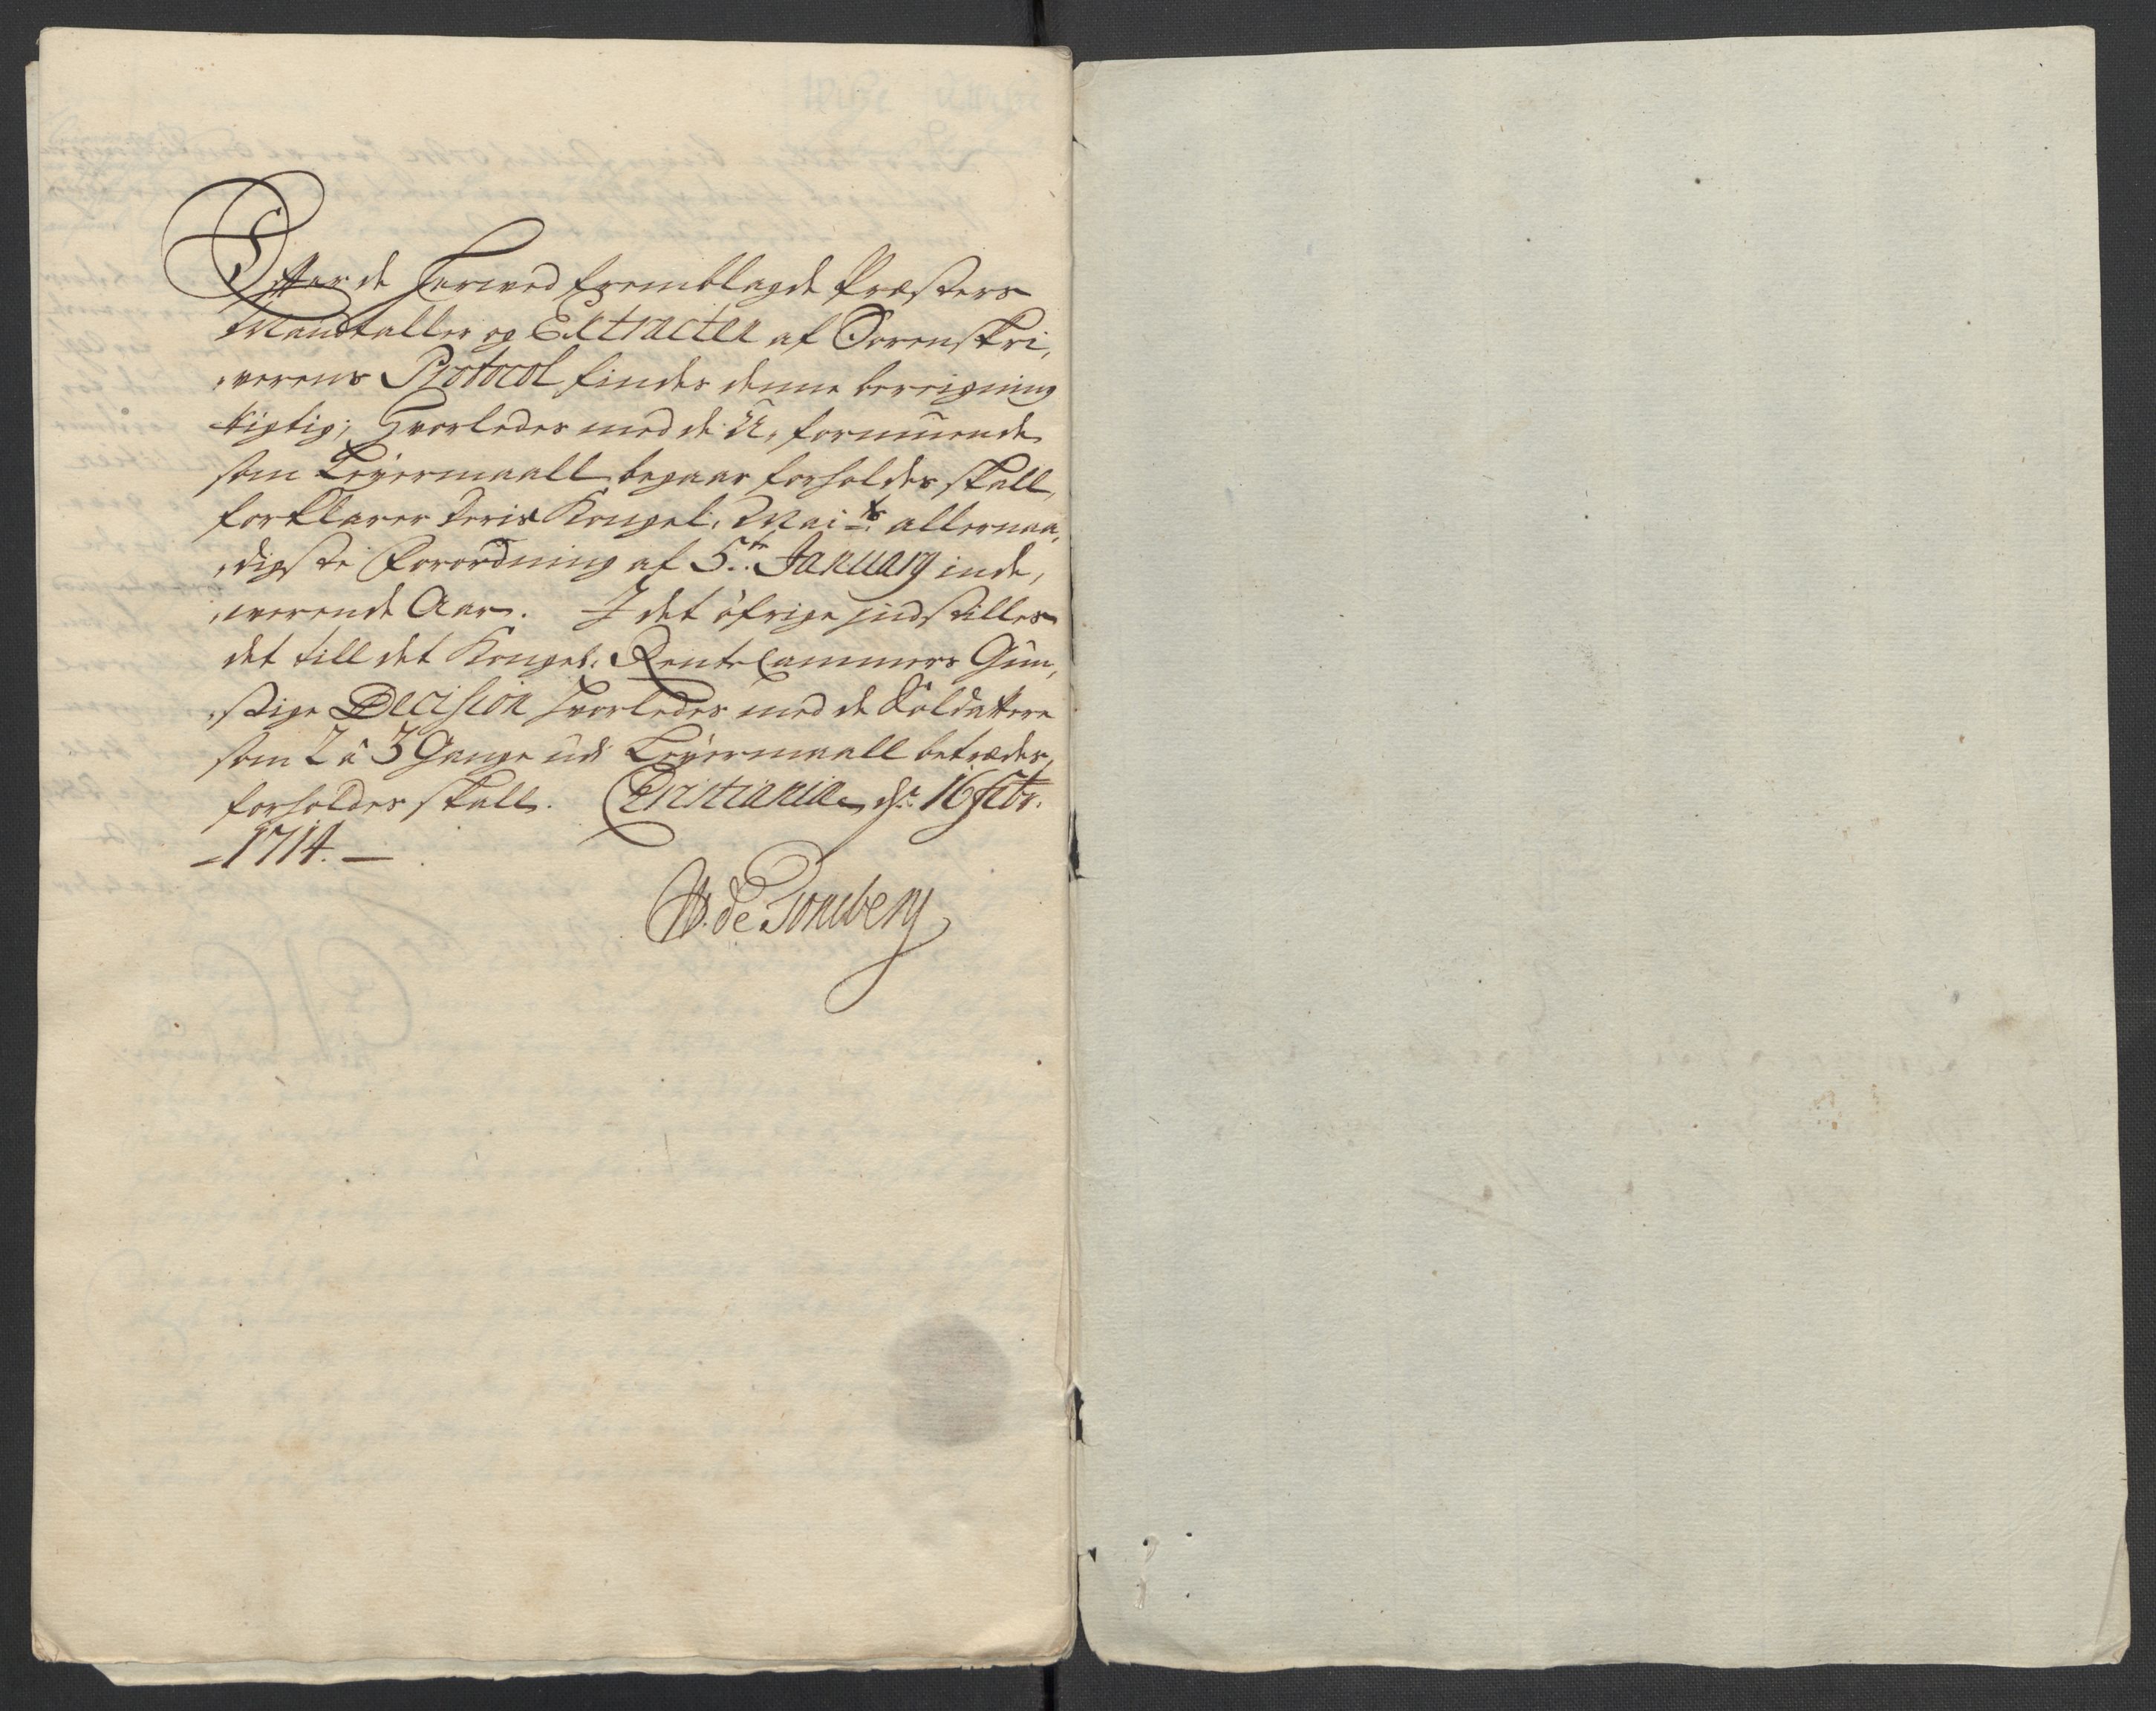 Efter de herwed fremblagde Præsters
Mandtaller og Extracter af Sorenskri,
,verens Protocol findes denne bereigning
rigtig; Hvorledes med de U,formuende
som Leyermaall begaar forholdes skall,
forklarer deris Kongel. Mai:ts allernaa,
,digste Forordning af 5te January inde,
,werende Aar. I det öfrige indstilles
det till det Kongel. RenteCammers Gun,
,stige Decision hvorledes med de Soldattere
som 2 à 3 Gange udi Leyermaall betrædes,
forholdes skall. Christiania d: 16 Febr.
1714.
W. de Tonsberg